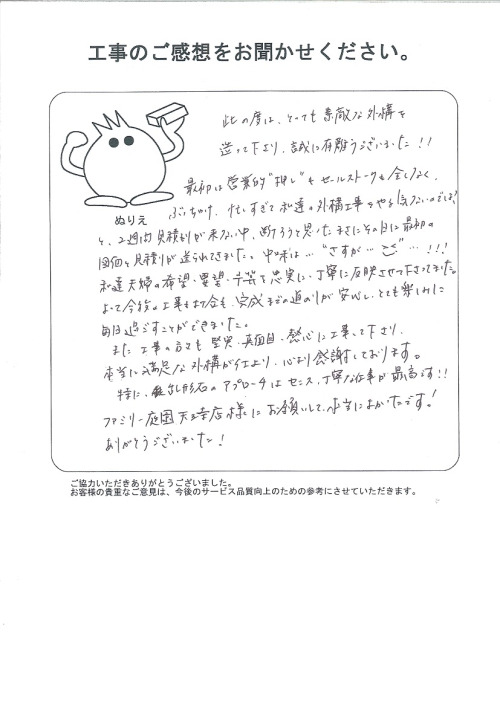 工事のご感想をお聞かせください。
此の度は、とっても素敵な外構を
造って下さり、誠に有難うございました!!
最初は営業的"押し"もセールストークも全くなく、
ぶっちゃけ、忙しすぎて私達の外構工事をやる気ないのでは?
と、2週間見積もりが来ない中、断ろうと思ったまさにその日に最初の
図面と見積りが送られてきました。中味は…"さすが…ご"…!!!
私達夫婦の希望・要望・予算を忠実に、丁寧に反映させて下さってました。
よって今後の工事も打合も、完成までの道のりが安心し、とても楽しみに
毎日過ごすことができました。
また工事の方々も堅実、真面目、熱心に工事して下さり、
本当に満足な外構が仕上り、心より感謝しております。
特に、乱形石のアプローチはセンス、丁寧な仕事が最高です!!
ファミリー庭園天王寺店様にお願いして、本当によかったです!
ありがとうございました!
ぬりえ
ご協力いただきありがとうございました。
お客様の貴重なご意見は、今後のサービス品質向上のための参考にさせていただきます。